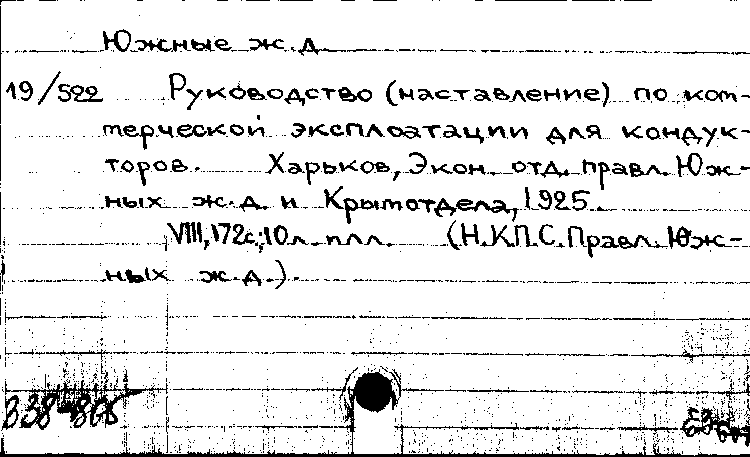 Южные ж.д.
19/522 Руководство (наставление) по ком-
мерческой эксплоатации для кондук-
торов. Харьков, Экон. отд. правл. Юж-
ных ж.д. и Крымотдела, 1925.
VIII, 172с.; 10 л. илл. (Н.К.П.С. Правл. Юж-
ных ж.д.).